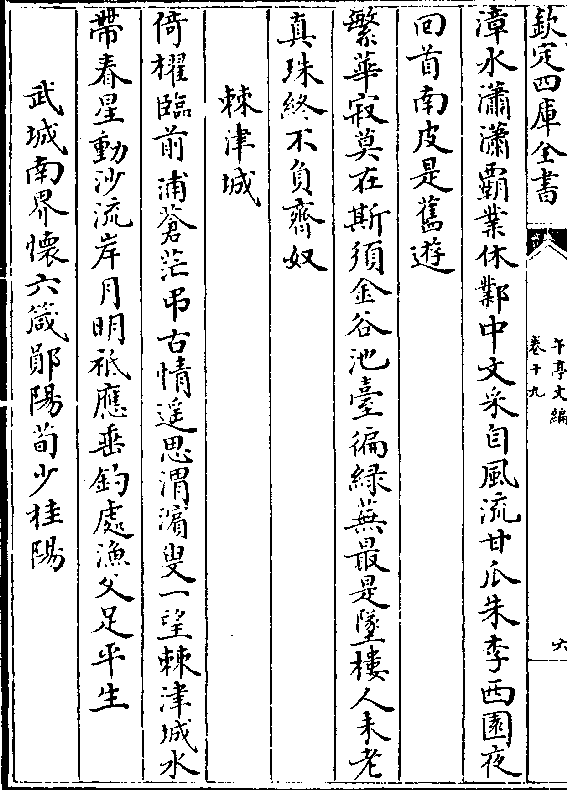 欽定四庫全書
午亭文編
卷十九
六
漳水瀟瀟霸業休鄴中文采自風流甘瓜朱李西園夜
回首南皮是舊遊
繁華寂莫在斯須金谷池臺徧綠蕪最是墜樓人未老
真珠終不負齊奴
棘津城
倚櫂臨前浦蒼茫弔古情遥思渭濵叟一望棘津城水
帶春星動沙流岸月明祇應垂釣處漁父足平生
武城南界懷六箴鄖陽荀少桂陽